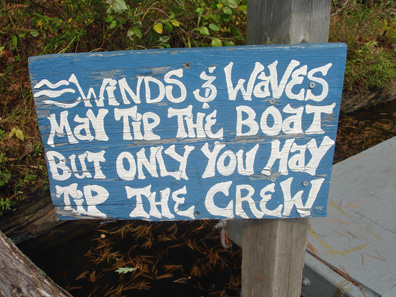 WINDS & WAVES
MAY TIP THE BOAT
BUT ONLY YOU MAY
TIP THE CREW